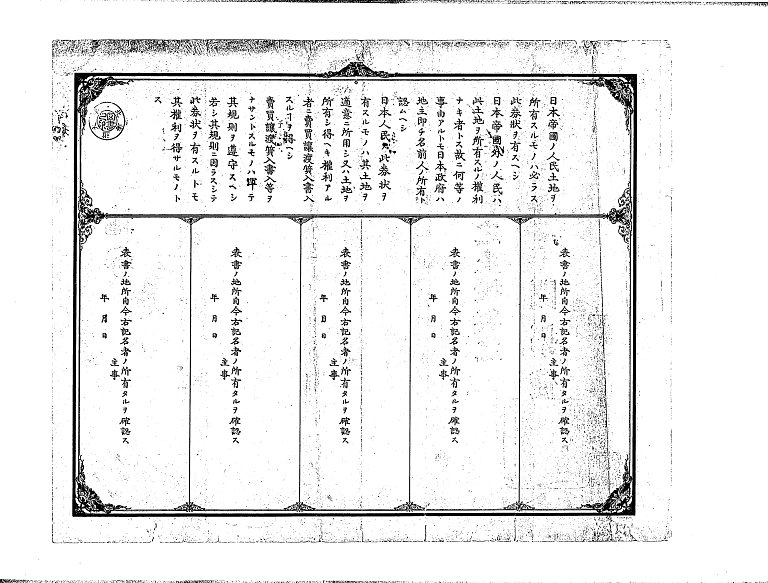 日本帝國ノ人民土地ヲ
所有スルモノハ必ラス
此券狀ヲ有スヘシ
日本帝國外ノ人民ハ
此土地ヲ所有スルノ權利
ナキ者トス故ニ何等ノ
事由アルトモ日本政府ハ
地主卽チ名前人ノ所有ト
認ムヘシ
日本人民此券狀ヲ
有スルモノハ其土地ヲ
適意ニ所用シ又ハ土地ヲ
所有シ得ヘキ權利アル
者ニ賣買讓渡質入書入
スルヿヲ得ヘシ
賣買讓渡質入書入等ヲ
ナサントスルモノハ渾テ
其規則ヲ遵守スヘシ
若シ其規則ニ因ラスシテ
此券狀ヲ有スルトモ
其權利ヲ得サルモノト
ス
表書ノ地所自今右記名者ノ所有タルヲ確認ス
年月日
主事
表書ノ地所自今右記名者ノ所有タルヲ確認ス
年月日
主事
表書ノ地所自今右記名者ノ所有タルヲ確認ス
年月日
主事
表書ノ地所自今右記名者ノ所有タルヲ確認ス
年月日
主事
表書ノ地所自今右記名者ノ所有タルヲ確認ス
年月日
主事